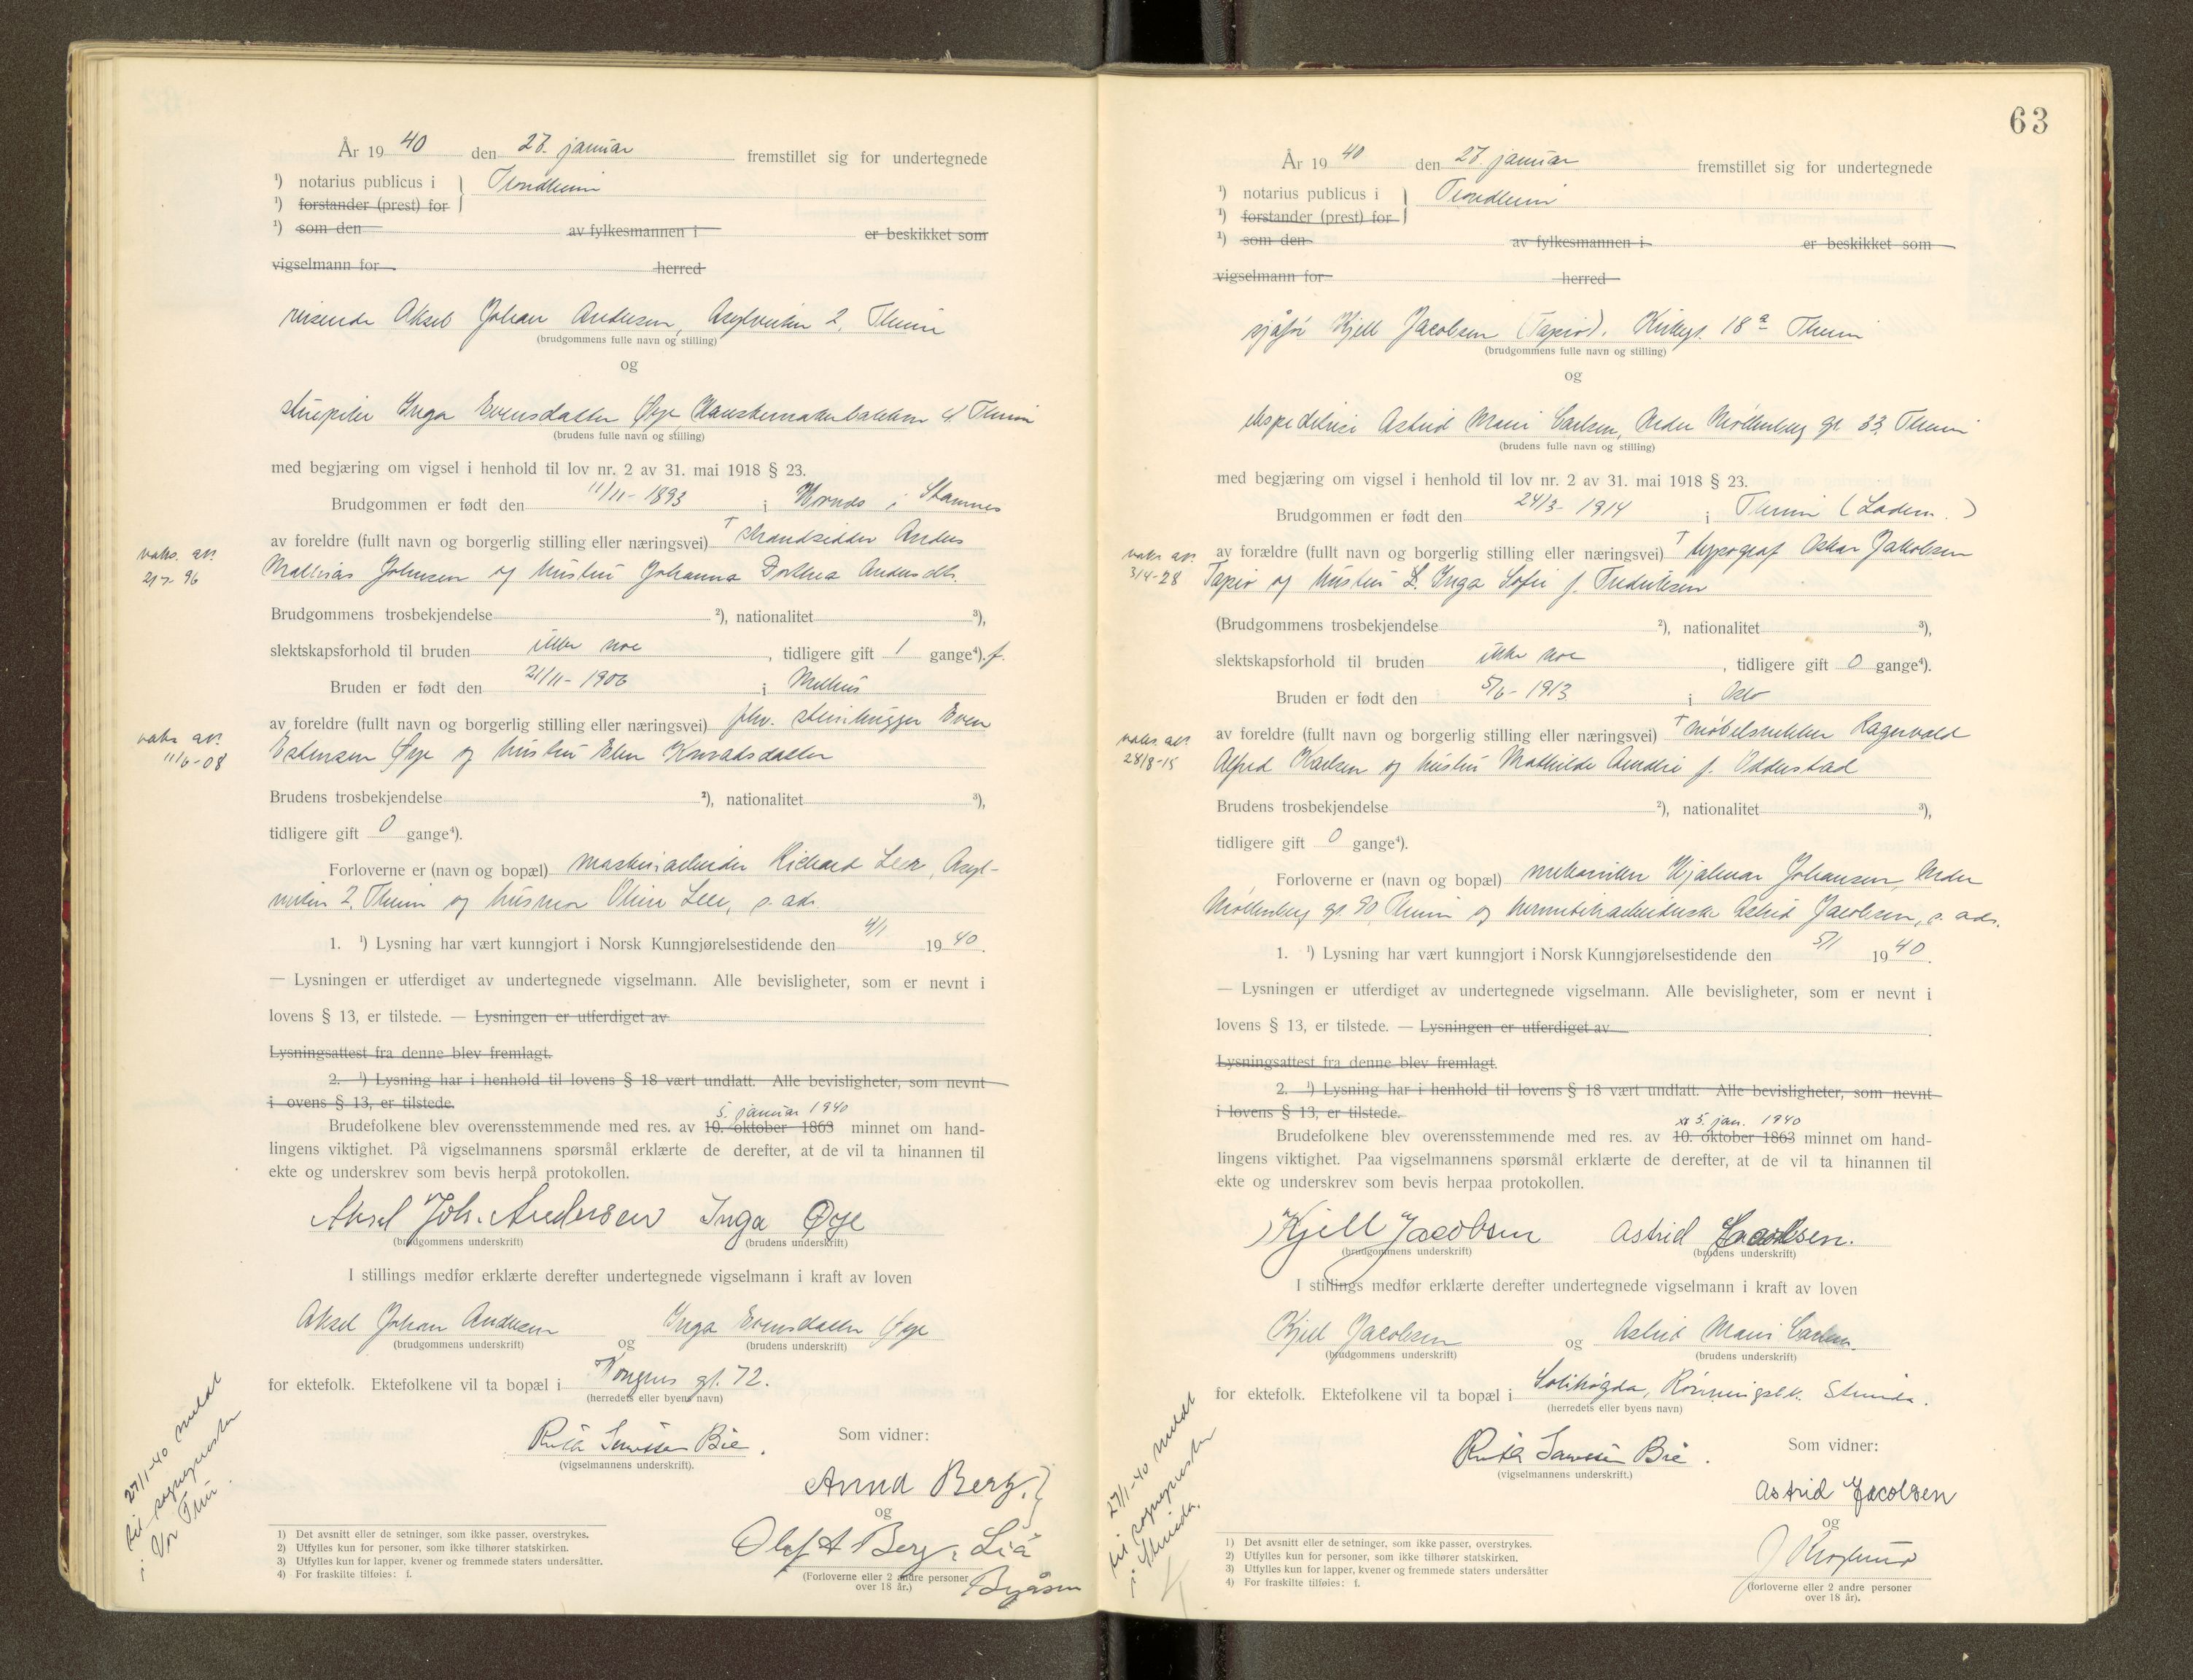 År 19 40 den 27. januar fremstillet sig for undertegnede
¹) notarius publicus i Trondheim
¹) forstander (prest) for
¹) som den av fylkesmannen i er beskikket som
vigselmann for herred
reisende Aksel Johan Andersen, Asylveiten 2, Theim
(brudgommens fulle navn og stilling)
og
Inga Evensdatter Øye, Hanskemakerbakken 4 Theim
(brudens fulle navn og stilling)
med begjæring om vigsel i henhold til lov nr. 2 av 31. mai 1918 § 23.
Brudgommen er født den 11/11- 1893 i i Stamnes
av foreldre (fullt navn og borgerlig stilling eller næringsvei) † strandsidder Anders
Mathias Johnsen og hustru Johanna Dorthea Andersdtr.
vaks. att.
Brudgommens trosbekjendelse ²), nationalitet ³),
slektskapsforhold til bruden ikke noe, tidligere gift 1 gange⁴). f.
Bruden er født den 21/11- 1906 i Melhus
av foreldre (fullt navn og borgerlig stilling eller næringsvei) fhv. stenhugger Even
Estensen Øye og hustru Elen
vaks. att.
11/6-08
Brudens trosbekjendelse ²), nationalitet ³),
tidligere gift 0 gange⁴).
Forloverne er (navn og bopæl) maskinarbeider Richard Leer, Asyl-
veiten 2, Theim og husmor Oline Leer, s. adr.
1. ¹) Lysning har vært kunngjort i Norsk Kunngjørelsestidende den 4/1 19 40.
— Lysningen er utferdiget av undertegnede vigselmann. Alle bevisligheter, som er nevnt i
lovens § 13, er tilstede. — Lysningen er utferdiget av
Lysningsattest fra denne blev fremlagt.
2. ¹) Lysning har i henhold til lovens § 18 vært undlatt. Alle bevisligheter, som nevnt
i ovens § 13, er tilstede.
5. januar 1940
Brudefolkene blev overensstemmende med res. av 10. oktober 1863 minnet om hand-
lingens viktighet. På vigselmannens spørsmål erklærte de derefter, at de vil ta hinannen til
ekte og underskrev som bevis herpå protokollen.
Aksel Joh. Andersen Inga Øye
(brudgommens underskrift) (brudens underskrift)
I stillings medfør erklærte derefter undertegnede vigselmann i kraft av loven
Aksel Johan Andersen og Inga Evensdatter Øye
(brudgommens underskrift) (brudens underskrift)
for ektefolk. Ektefolkene vil ta bopæl i Kongens gt. 72.
(herredets eller byens navn)
Bie.
(vigselmannens underskrift).
Som vidner:
Anna Berg.
og
Olaf A Berg, Lia
Byåsen
(Forloverne eller 2 andre personer
over 18 år.)
27/1-40 meldt
til sognepresten
i Vor Frue.
1) Det avsnitt eller de setninger, som ikke passer, overstrykes.
2) Utfylles kun for personer, som ikke tilhører statskirken.
3) Utfylles kun for lapper, kvener og fremmede staters undersåtter.
4) For fraskilte tilføies: f.
63
År 19 40 den 27. januar fremstillet sig for undertegnede
¹) notarius publicus i Trondheim
¹) forstander (prest) for
¹) som den av fylkesmannen i er beskikket som
vigselmann for herred
sjåfør Kjell Jacobsen (Tapio). Kirkegt. 18 a Theim
(brudgommens fulle navn og stilling)
og
ekspeditrise Astrid Marie Carlsen, Nedre Møllenberg gt. 33, Theim
(brudens fulle navn og stilling)
med begjæring om vigsel i henhold til lov nr. 2 av 31. mai 1918 § 23.
Brudgommen er født den 24/3- 1914 i Theim (Ladem.)
av forældre (fullt navn og borgerlig stilling eller næringsvei) † typograf Oskar Jakobsen
Tapio og hustru L. Inga Sofie f. Fredriksen
vaks. att.
3/4-28
(Brudgommens trosbekjendelse ²), nationalitet ³),
slektskapsforhold til bruden ikke noe, tidligere gift 0 gange⁴).
Bruden er født den 5/6- 1913 i Oslo
av foreldre (fullt navn og borgerlig stilling eller næringsvei) † møbelsnekker Ragnvald
Alfred Karlsen og hustru Mathilde f. Oddestad
vaks. att.
28/8-15
Brudens trosbekjendelse ²), nationalitet ³),
tidligere gift 0 gange⁴).
Forloverne er (navn og bopæl) mekaniker Hjalmar Johansen, Nedre
Møllenberg gt. 90, Theim og hermetikarbeiderske Astrid Jacobsen, s. adr.
1. ¹) Lysning har vært kunngjort i Norsk Kunngjørelsestidende den 5/1 19 40.
— Lysningen er utferdiget av undertegnede vigselmann. Alle bevisligheter, som er nevnt i
lovens § 13, er tilstede. — Lysningen er utferdiget av
Lysningsattest fra denne blev fremlagt.
2. ¹) Lysning har i henhold til lovens § 18 vært undlatt. Alle bevisligheter, som nevnt
i lovens § 13, er tilstede.
5. jan. 1940
Brudefolkene blev overensstemmende med res. av 10. oktober 1863 minnet om hand-
lingens viktighet. Paa vigselmannens spørsmål erklærte de derefter, at de vil ta hinannen til
ekte og underskrev som bevis herpaa protokollen.
Kjell Jacobsen Astrid Carlsen.
(brudgommens underskrift) (brudens underskrift)
I stillings medfør erklærte derefter undertegnede vigselmann i kraft av loven
Kjell Jacobsen og Astrid Marie Carlsen.
(brudgommens underskrift) (brudens underskrift)
for ektefolk. Ektefolkene vil ta bopæl i Solihøgda, Rønningsbk. Strinda.
(herredets eller byens navn)
Bie.
(vigselmannens underskrift.)
Som vidner:
Astrid Jacobsen
og
(forloverne eller 2 andre personer
over 18 år).
27/1-40 meldt
til sognepresten
i Strinda.
1) Det avsnitt eller de setninger, som ikke passer, overstrykes.
2) Utfylles kun for personer, som ikke tilhører statskirken.
3) Utfylles kun for lapper, kvener og fremmede staters undersåtter
4) For fraskilte tilføies: f.